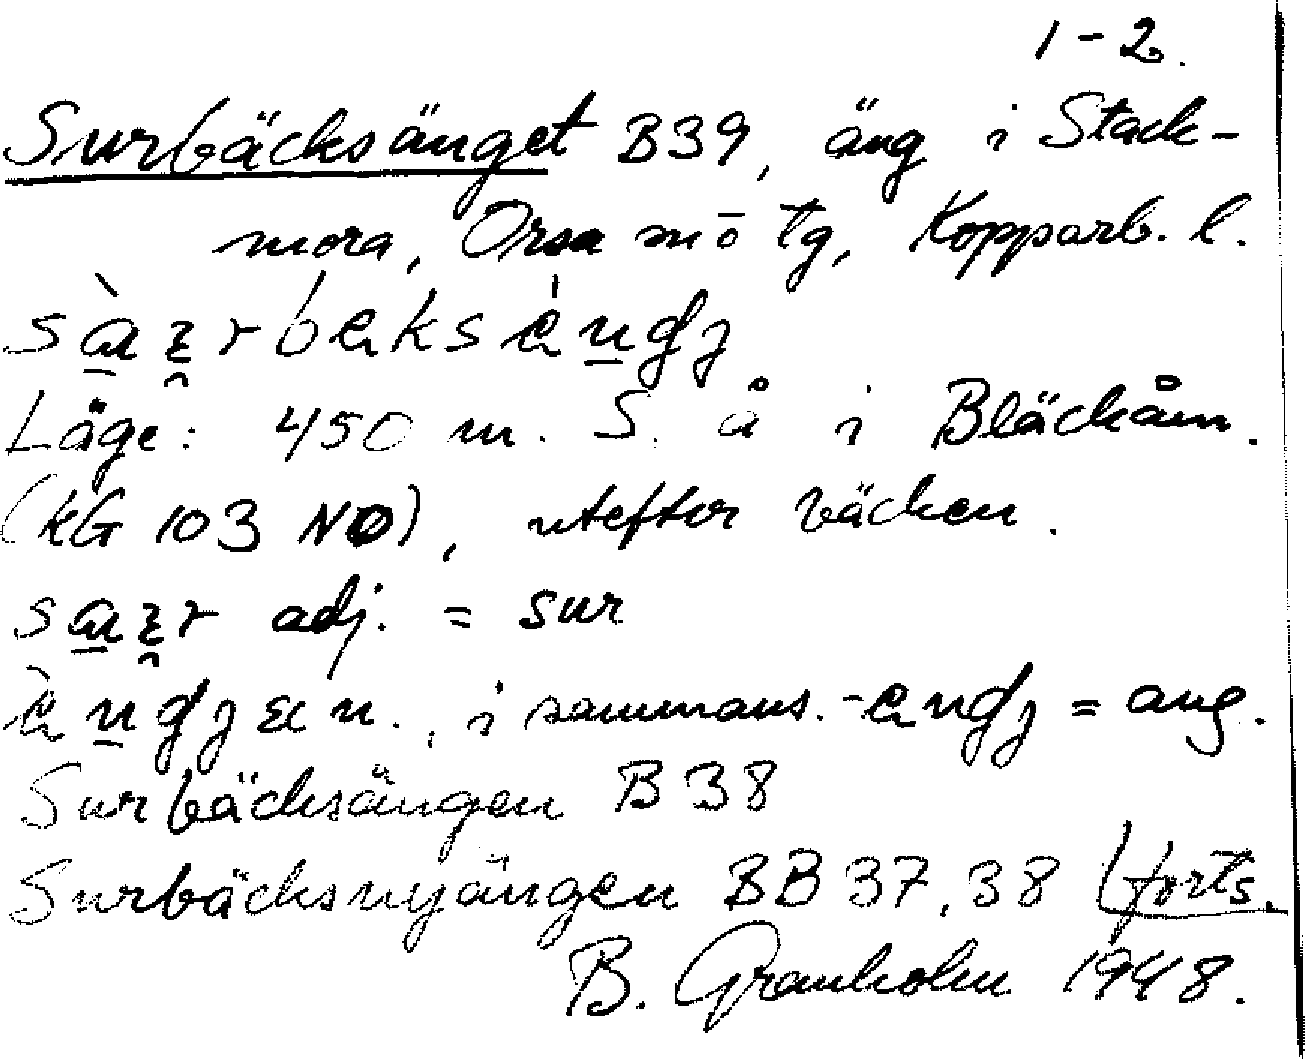 1-2.
Surbäcksänget B39, äng i Stack-
mora, Orsa sn ö tg, Kopparb. l.
Läge: 450 m. S. å i Bläckåm.
(KG 103 NO), utefter bäcken.
adj. = sur
i sammans. = äng.
Surbäcksängen B 38
Surbäcksnyängen BB 37, 38 forts.
B. Granholm 1948.